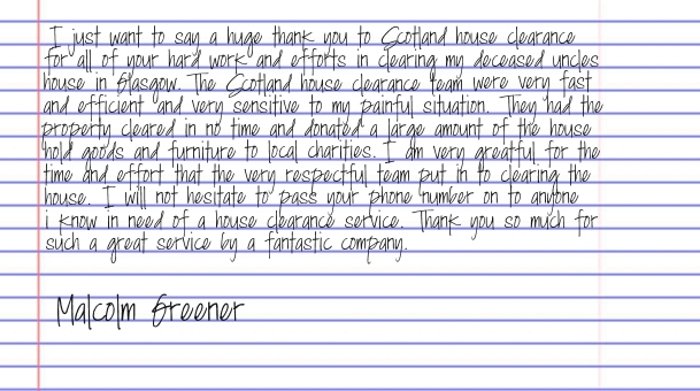 I just want to say a huge thank you to Scotland house clearance
for all of your hard work and efforts in clearing my deceased uncles
house in Glasgow. The Scotland house clearance team were very fast
and efficient and very sensitive to my painful situation. They had the
property cleared in no time and donated a large amount of the house
hold goods and furniture to local charities. I am very greatful for the
time and effort that the very respectful team put in to clearing the
house. I will not hesitate to pass your phone number on to anyone
i know in need of a house clearance service. Thank you so much for
such a great service by a fantastic company.
Malcolm Greener